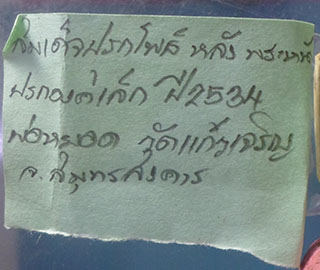 สมเด็จปรกโพธิ์ หลัง พระ
ปรกองค์เล็ก ปี 2534
พ่อหยอด วัดแก้วเจริญ
จ.สมุทรสงคาร